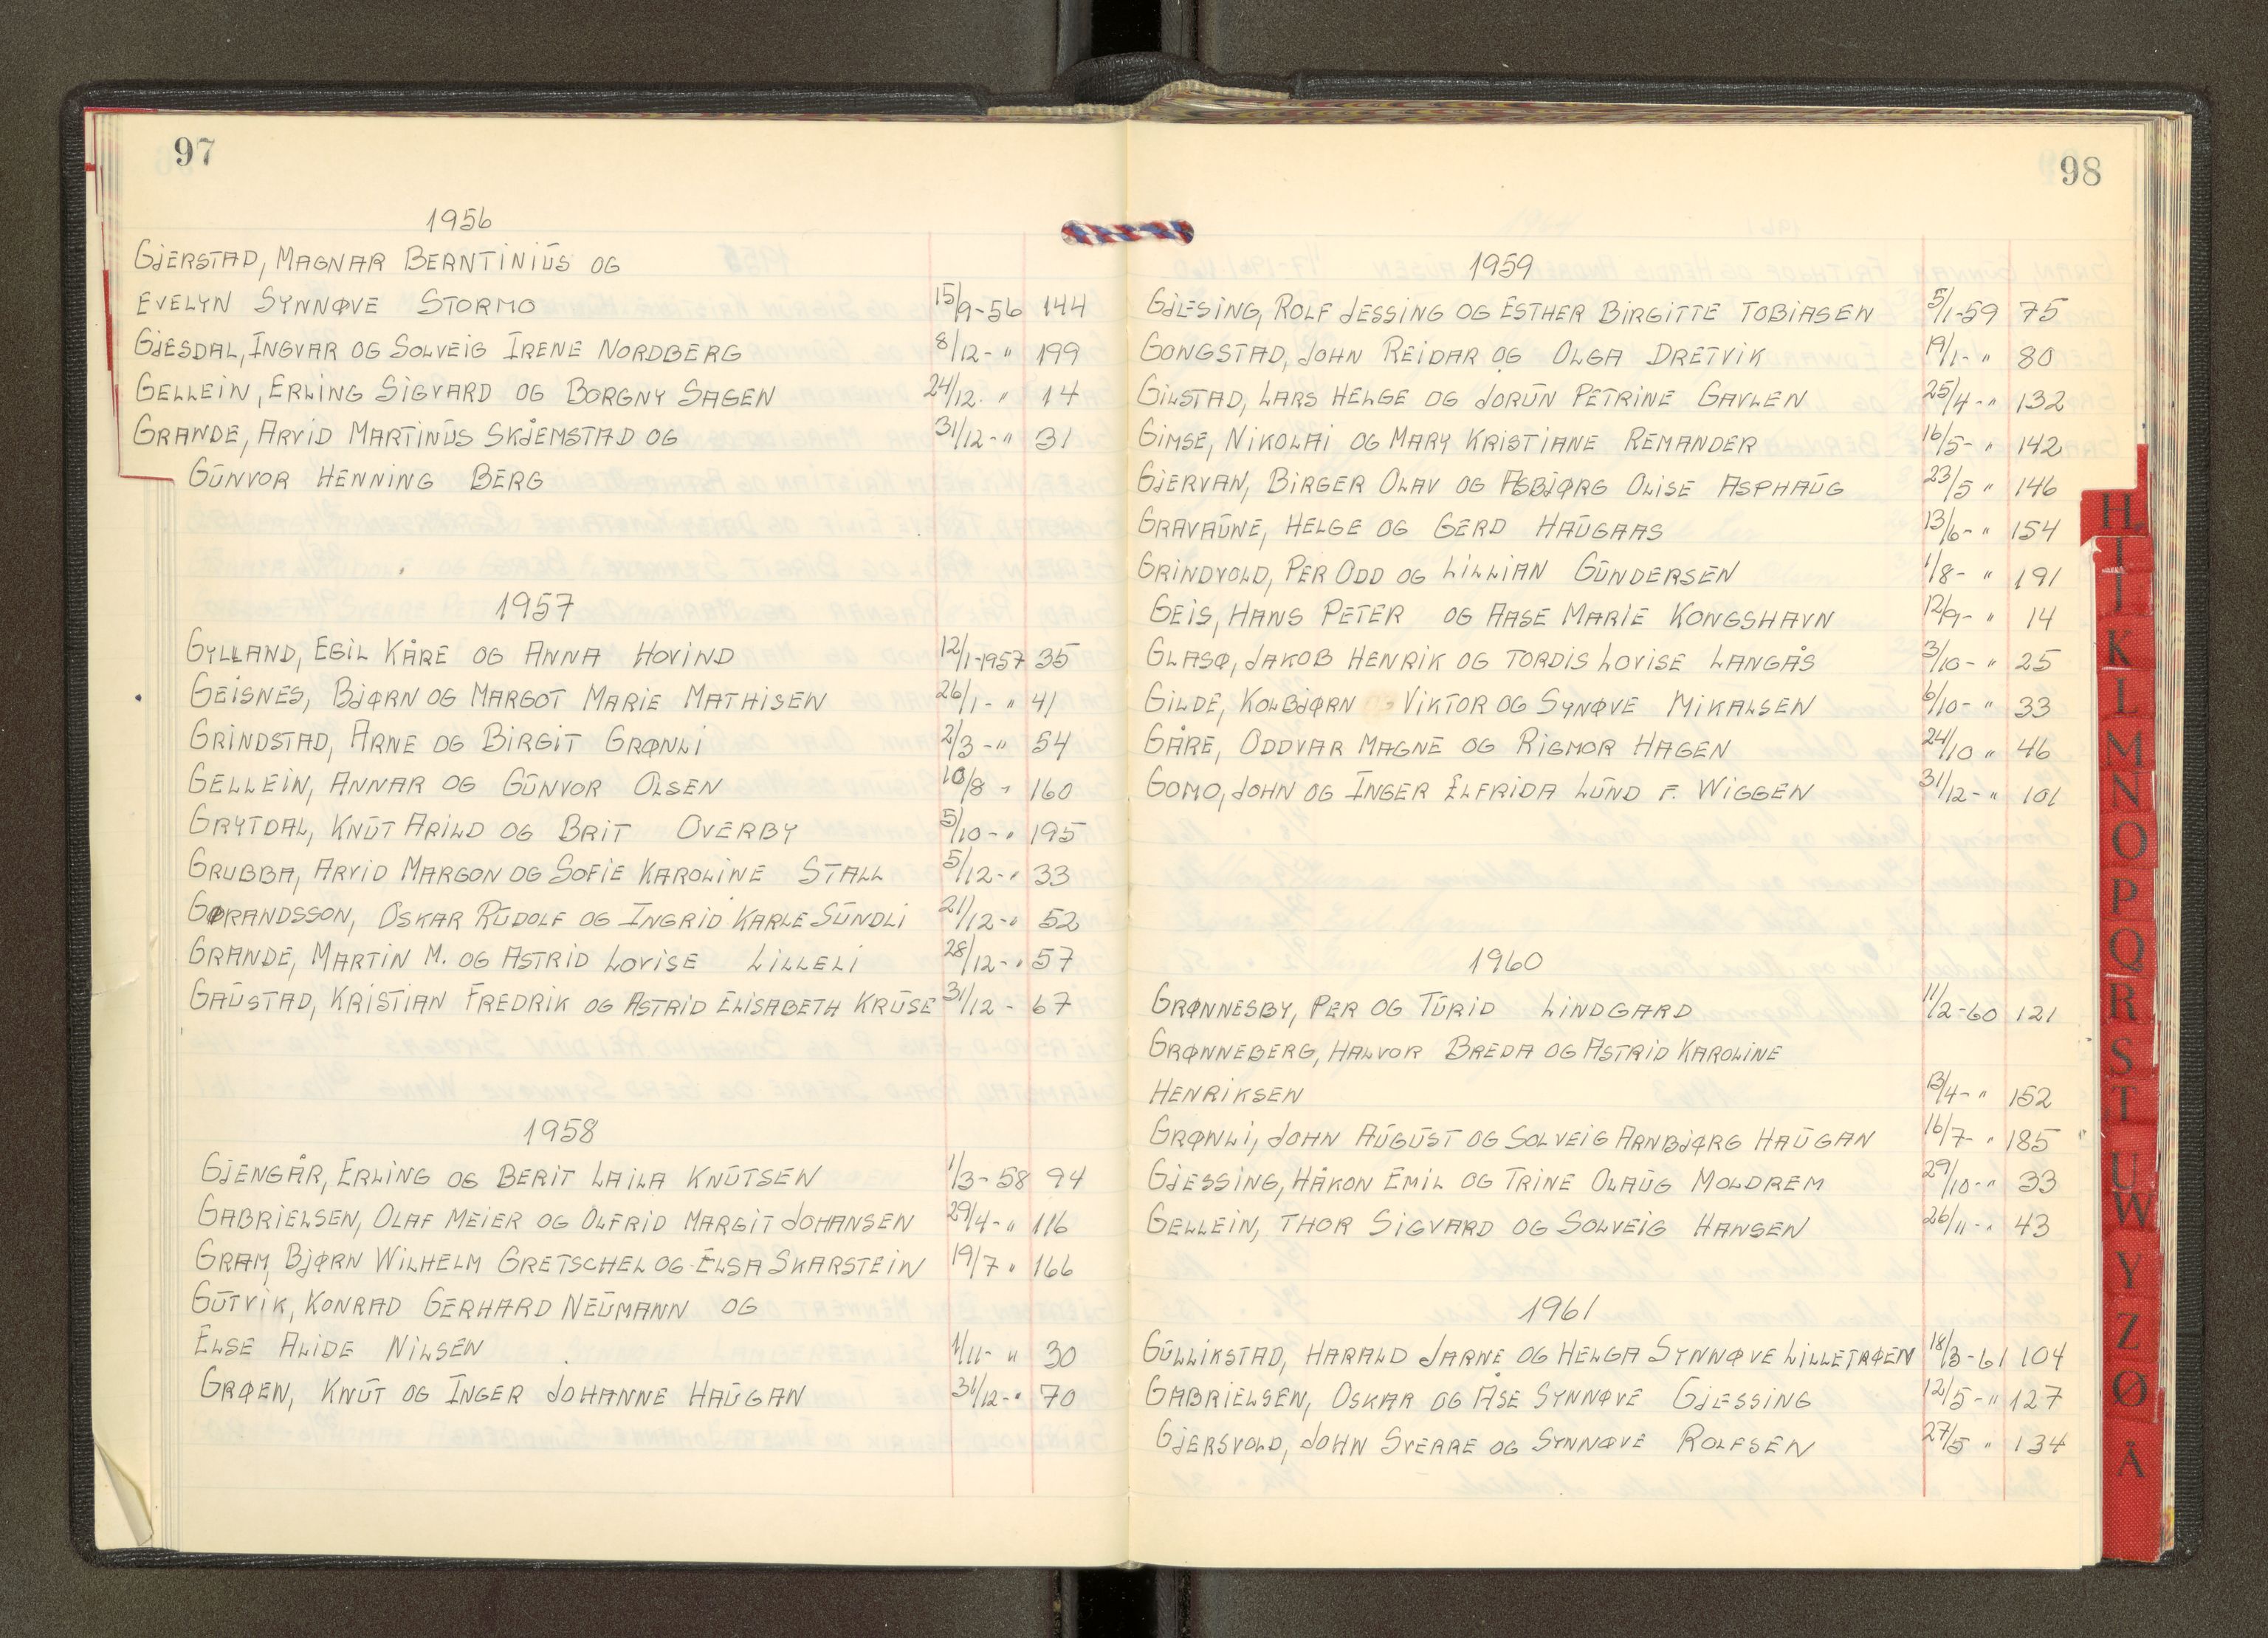 97
1956
GJERSTAD, MAGNAR BERNTINIUS OG
EVELYN SYNNØVE STORMO 15/9-56 144
GJESDAL, INGVAR OG SOLVEIG IRENE NORDBERG 8/12- " 199
GELLEIN, ERLING SIGVARD OG BORGNY SAGEN 24/12. " 14
GRANDE, ARVID MARTINUS SKJEMSTAD OG 31/12- " 31
GUNVOR HENNING BERG
1957
GYLLAND, EGIL KÅRE OG ANNA HOVIND 12/1-1957 35
GEISNES, BJØRN OG MARGOT MARIE MATHISEN 26/1- " 41
GRINDSTAD, ARNE OG BIRGIT GRØNLI 2/3- " 54
GELLEIN, ANNAR OG GUNVOR OLSEN 10/8 " 160
GRYTDAL, KNUT ARILD OG BRIT OVERBY 5/10- " 195
GRUBBA, ARVID MARGON OG SOFIE KAROLINE STALL 5/12- " 33
GØRANDSSON, OSKAR RUDOLF OG INGRID KARLE SUNDLI 21/12- " 52
GRANDE, MARTIN M. OG ASTRID LOVISE LILLELI 28/12- " 57
GAUSTAD, KRISTIAN FREDRIK OG ASTRID ELISABETH KRUSE 31/12 - 67
1958
GJENGÅR, ERLING OG BERIT LAILA KNUTSEN 1/3- 58 94
GABRIELSEN, OLAF MEIER OG OLFRID MARGIT JOHANSEN 29/4- " 116
GRAM, BJØRN WILHELM GRETSCHEL OG ELSA SKARSTEIN 19/7 " 166
GUTVIK, KONRAD GERHARD NEUMANN OG
ELSE ALIDE NILSEN 1/11- " 30
GRØEN, KNUT OG INGER JOHANNE HAUGAN 31/12- " 70
98
1959
GJESING, ROLF JESSING OG ESTHER BIRGITTE TOBIASEN 5/1-59 75
GONGSTAD, JOHN REIDAR OG OLGA DRETVIK 19/1- " 80
GILSTAD, LARS HELGE OG JORUN PETRINE GAVLEN 25/4- " 132
GIMSE, NIKOLAI OG MARY KRISTIANE REMANDER 16/5- " 142
GJERVAN, BIRGER OLAV OG ASBJØRG OLISE ASPHAUG 23/5 " 146
GRAVAUNE, HELGE OG GERD HAUGAAS 13/6- " 154
GRINDVOLD, PER ODD OG LILLIAN GUNDERSEN 1/8- " 191
GEIS, HANS PETER OG AASE MARIE KONGSHAVN 12/9- " 14
GLASØ, JAKOB HENRIK OG TORDIS LOVISE LANGÅS 3/10- " 25
GILDE, KOLBJØRN VIKTOR OG SYNØVE MIKALSEN 6/10- " 33
GÅRE, ODDVAR MAGNE OG RIGMOR HAGEN 24/10 " 46
GOMO, JOHN OG INGER ELFRIDA LUND F. WIGGEN 31/12- " 101
1960
GRØNNESBY, PER OG TURID LINDGARD 11/2-60 121
GRØNNEBERG, HALVOR BREDA OG ASTRID KAROLINE
HENRIKSEN 13/4- " 152
GRØNLI, JOHN AUGUST OG SOLVEIG ARNBJØRG HAUGAN 16/7- " 185
GJESSING, HÅKON EMIL OG TRINE OLAUG MOLDREM 29/10- " 33
GELLEIN, THOR SIGVARD OG SOLVEIG HANSEN 26/11- " 43
1961
GULLIKSTAD, HARALD JARNE OG HELGA SYNNØVE LILLETRØEN 18/3-61 104
GABRIELSEN, OSKAR OG ÅSE SYNNØVE GJESSING 12/5- " 127
GJERSVOLD, JOHN SVERRE OG SYNNØVE ROLFSEN 27/5 " 134
H
I
J
K
L
M
N
O
P
Q
R
S
T
U
W
Y
Z
Ø
Å